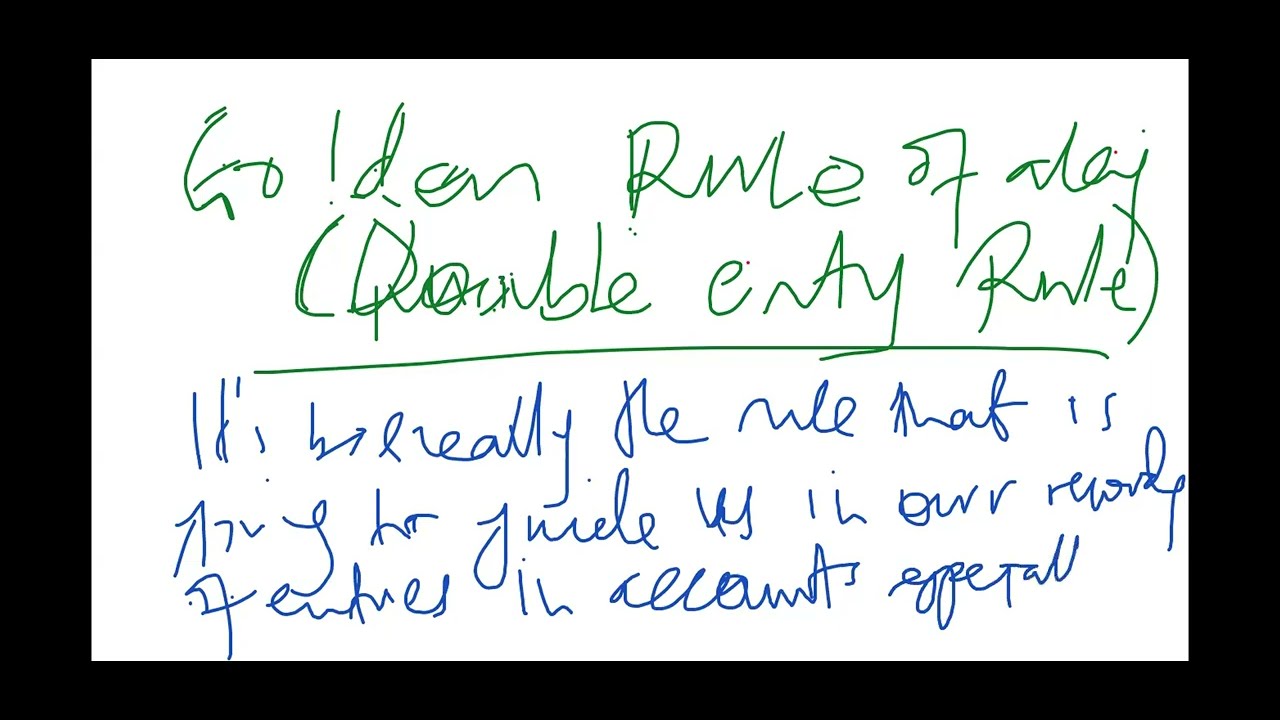 Golden Rule of
(Double enty Rule)
It's basically the rule that is
going to guide us in our recording
of entries in accounts